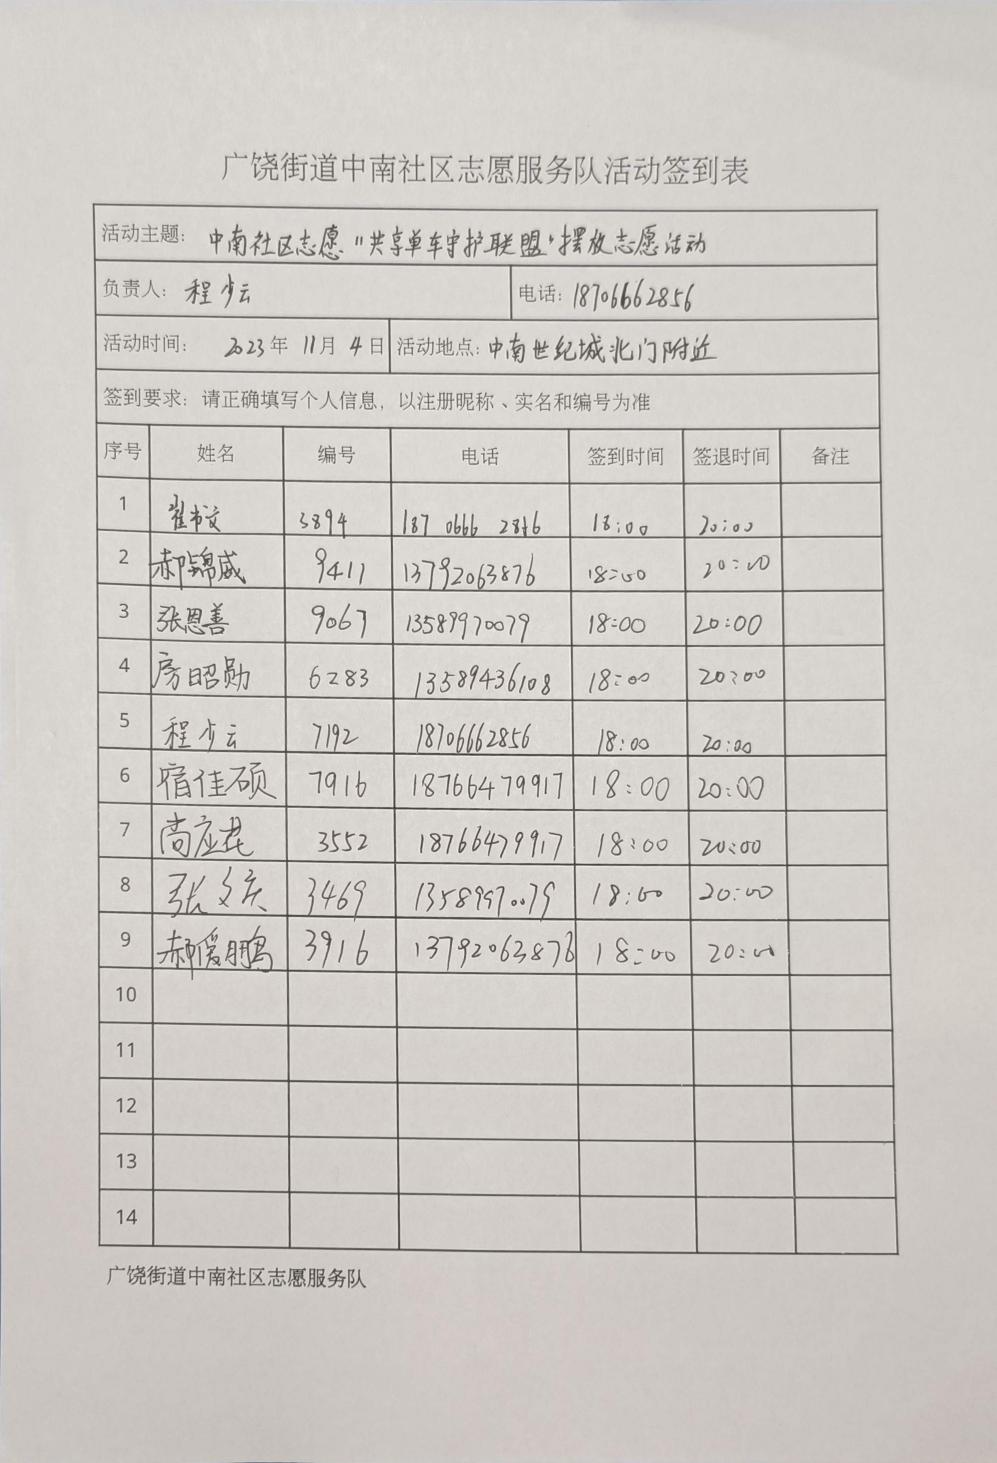 广饶街道中南社区志愿服务队活动签到表
活动主题: 中南社区志愿“共享单车守护联盟”摆放志愿活动
负责人: 程少云 电话: 18706662856
活动时间: 2023年 11月 4日 活动地点: 中南世纪城北门附近
签到要求: 请正确填写个人信息, 以注册昵称、实名和编号为准
序号 姓名 编号 电话 签到时间 签退时间 备注
1 翟书文 3894 187 0666 2856 18:00 20:00
2 郝锦威 9411 13792063876 18:00 20:00
3 张恩善 9067 13589970079 18:00 20:00
4 房昭勋 6283 13589436108 18:00 20:00
5 程少云 7192 18706662856 18:00 20:00
6 宿佳硕 7916 18766479917 18:00 20:00
7 尚应昆 3552 18766479917 18:00 20:00
8 张 3469 13589970079 18:00 20:00
9 郝爱鹏 3916 13792063876 18:00 20:00
10
11
12
13
14
广饶街道中南社区志愿服务队